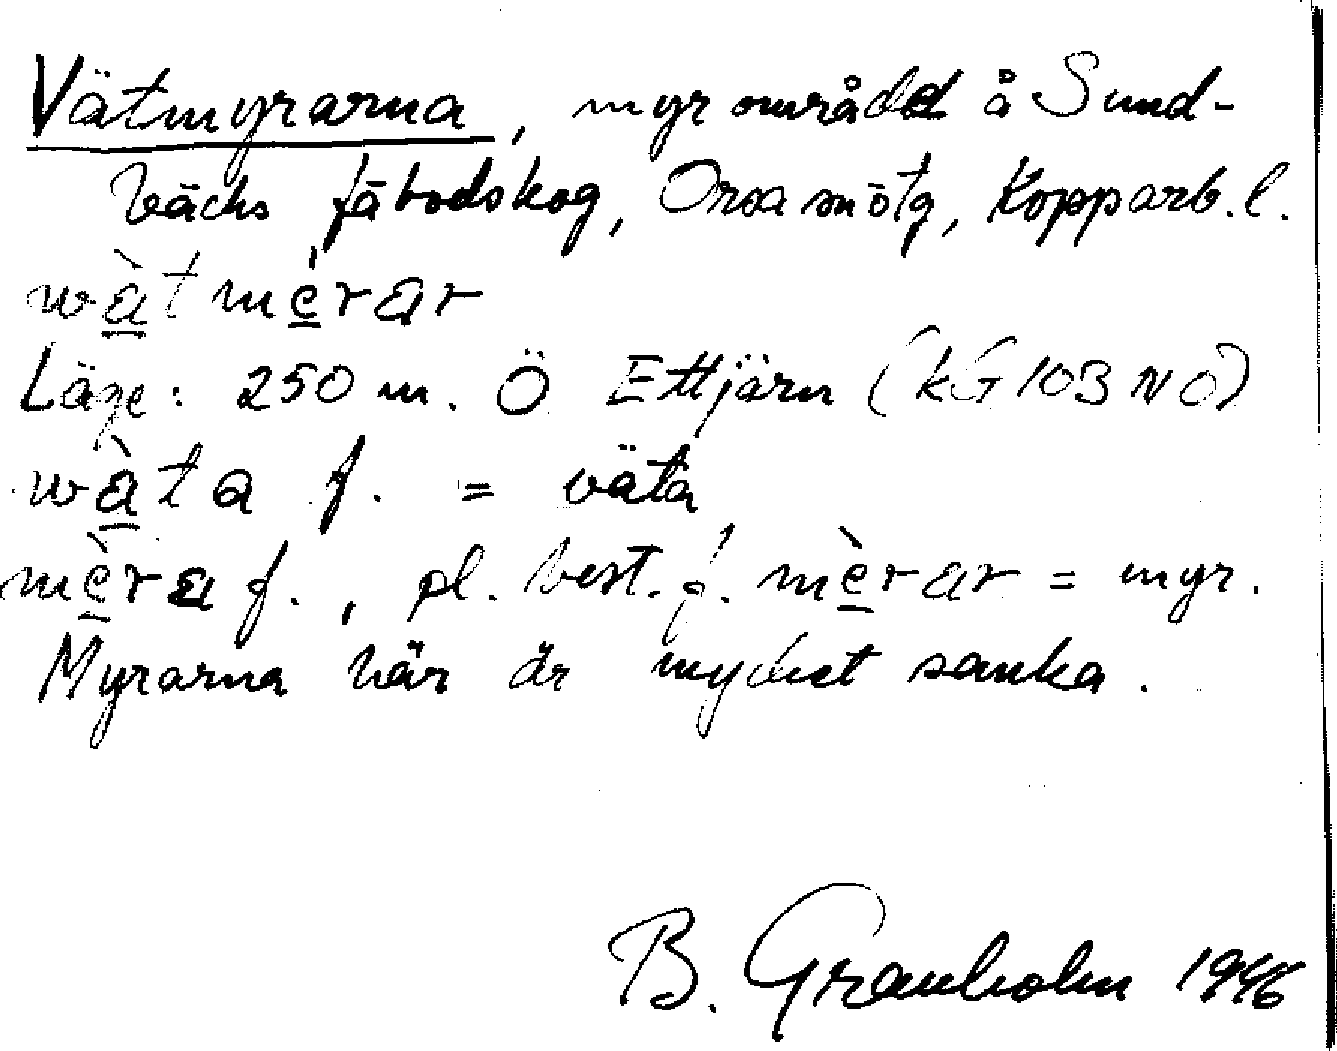 Vätmyrarna, myrområde å Sund-
bäcks fäbodskog, Orsa smstg, Kopparb. l.
wàt mérar
Läge: 250 m. Ö Ettjärn (kG 103 NO)
wàta f. = väta
mèra f., pl. best. f. mèrar = myr.
Myrarna här är mycket sanka.
B. Granholm 1946